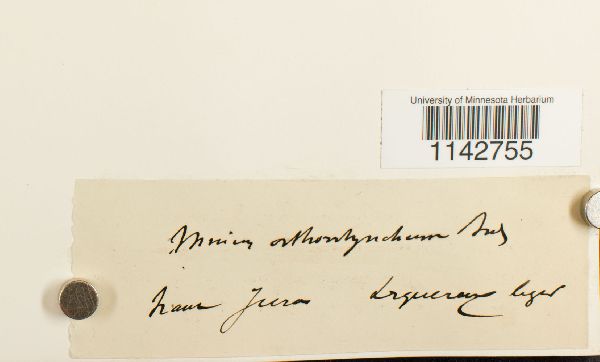 University of Minnesota Herbarium
1142755
Mnium orthorhynchum
Jura Lesquereux legit